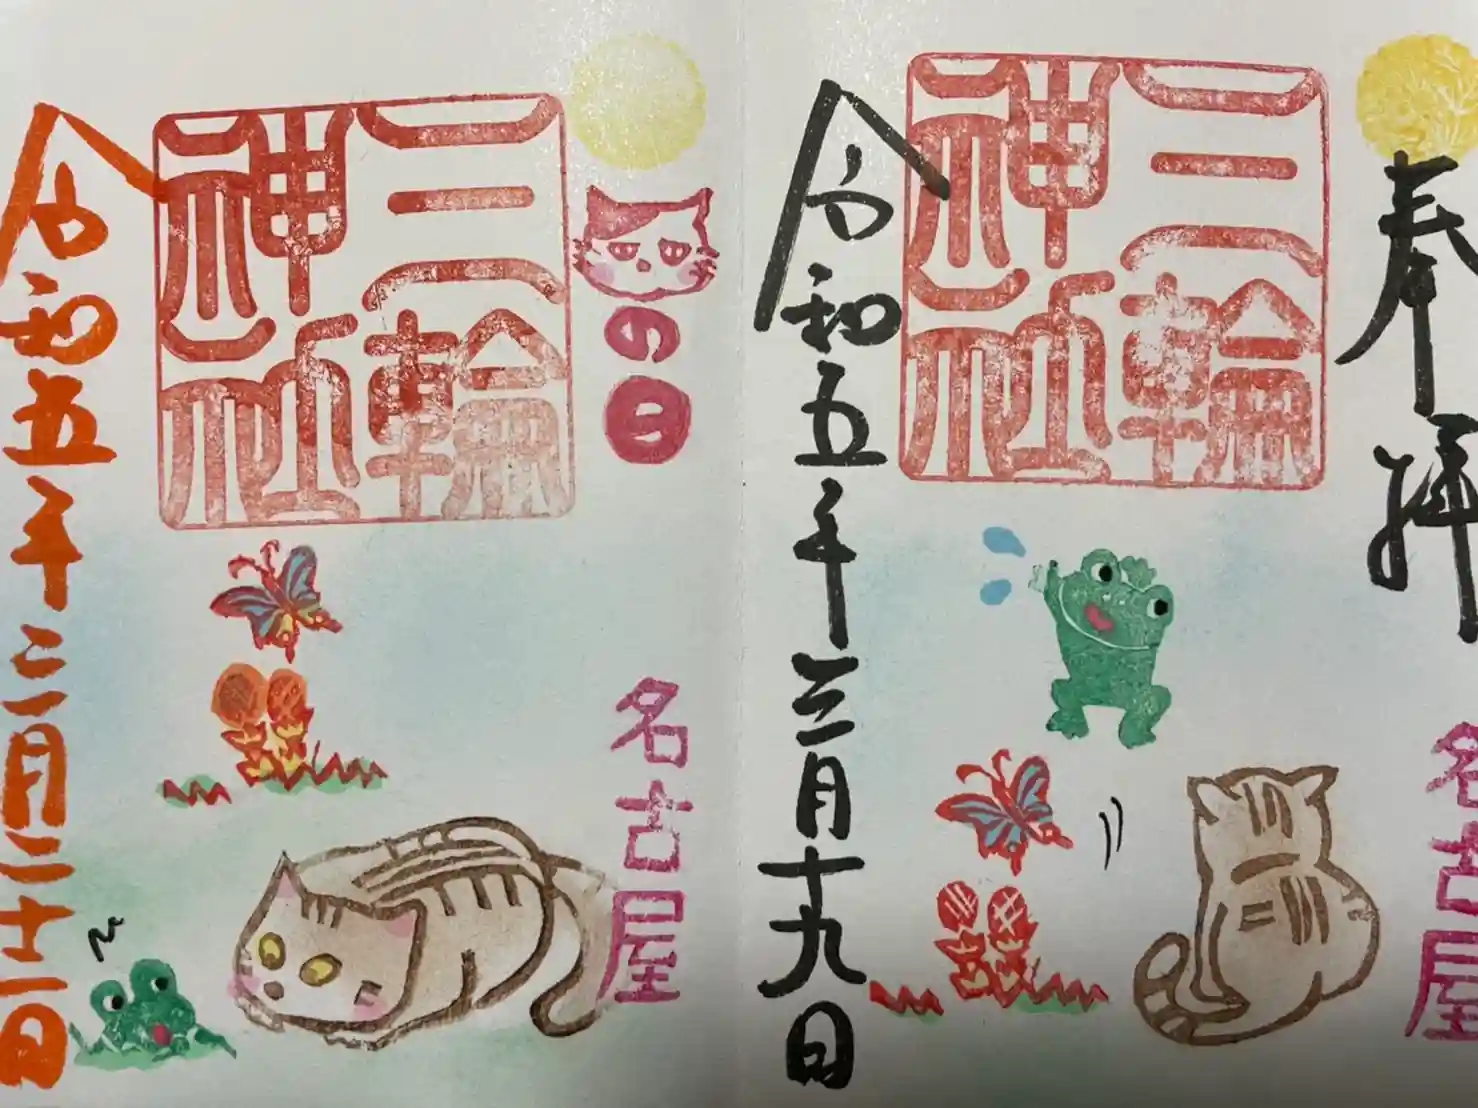 奉拝
名古屋
三輪
神社
令和五年三月十九日
の日
名古屋
三輪
神社
令和五年二月二十二日